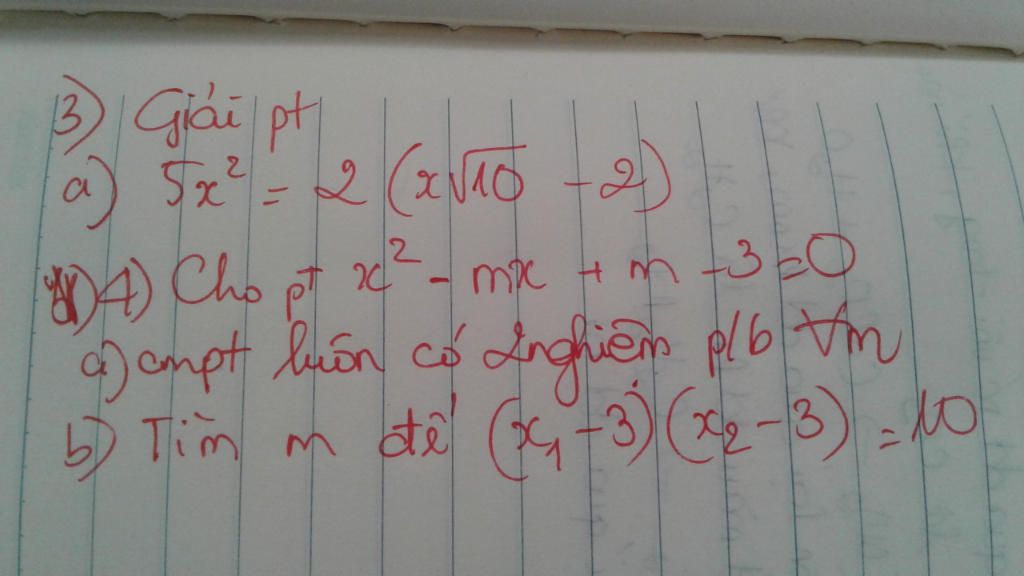 3) Giải pt
a) 5x² = 2 (x√10 - 2)
4) Cho pt x² - mx + m - 3 = 0
a) cmpt luôn có 2 nghiệm p/b ∀m
b) Tìm m để (x₁ - 3)(x₂ - 3) = 10